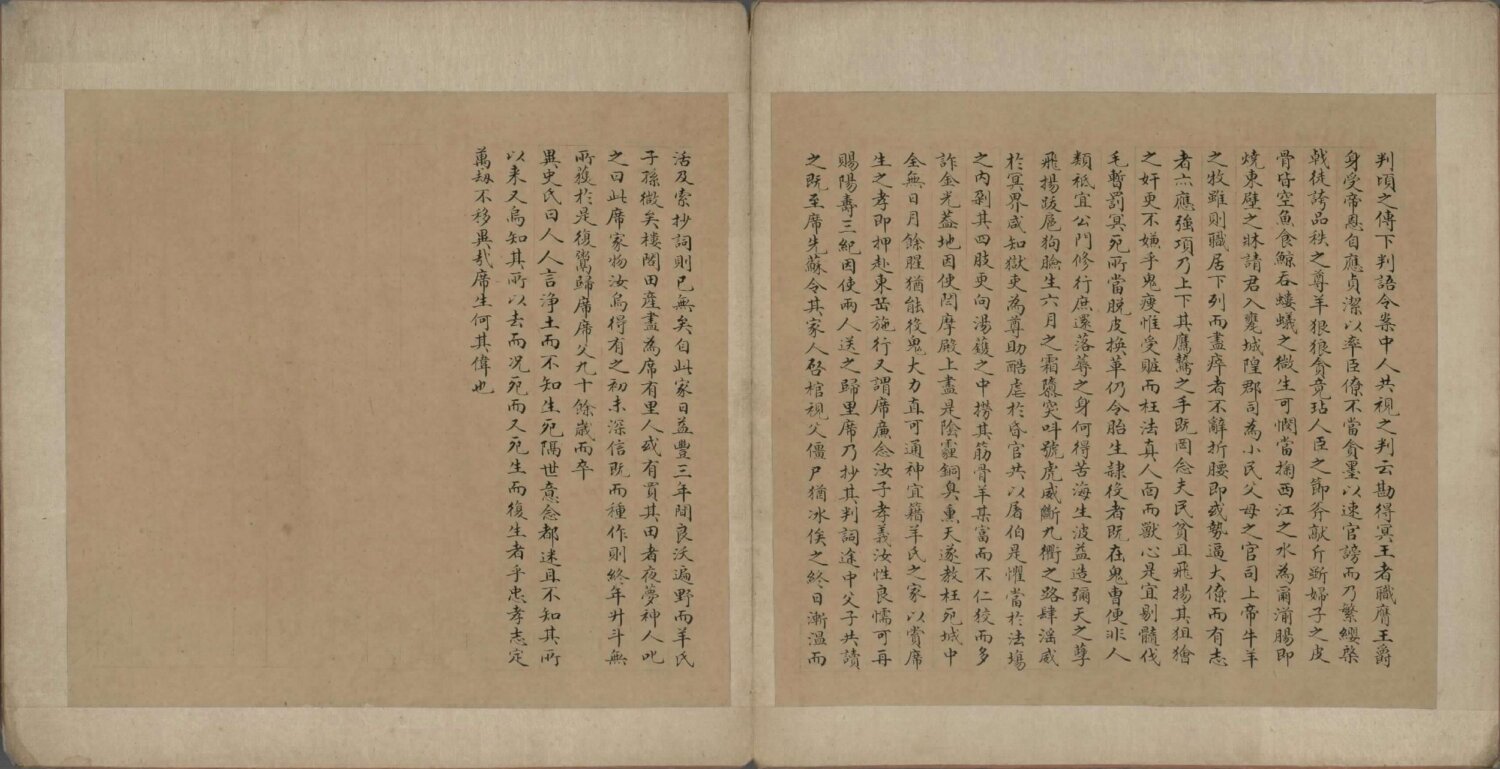 判頃之傳下判語令案中人共視之判云勘得冥王者職膺王爵
身受帝恩自應貞潔以率臣僚不當貪墨以速官謗而乃繁纓棨
戟徒誇品秩之尊羊狠狼貪竟玷人臣之節斧敲斤斲婦子之皮
骨皆空魚食鯨吞螻蟻之微生可憫當掬西江之水為爾湔腸即
燒東壁之牀請君入甕城隍郡司為小民父母之官司上帝牛羊
之牧雖則職居下列而盡瘁者不辭折腰即或勢逼大僚而有志
者亦應強項乃上下其鷹鷙之手既罔念夫民貧且飛揚其狙獪
之奸更不嫌乎鬼瘦惟受贓而枉法真人面而獸心是宜剔髓伐
毛暫罰冥死所當脫皮換革仍令胎生隷役者既在鬼曹便非人
類秖宜公門修行庶還落蓐之身何得苦海生波益造彌天之孽
飛揚跋扈狗臉生六月之霜隳突呌號虎威斷九衢之路肆滛威
於冥界咸知獄吏為尊助酷虐於昏官共以屠伯是懼當於法塲
之內剁其四肢更向湯鑊之中撈其筋骨羊某富而不仁狡而多
詐金光葢地因使閻摩殿上盡是陰霾銅臭熏天遂教枉死城中
全無日月餘腥猶能役鬼大力直可通神宜籍羊氏之家以賞席
生之孝即押赴東岳施行又謂席廉念汝子孝義汝性良懦可再
賜陽壽三紀因使兩人送之歸里席乃抄其判詞途中父子共讀
之既至席先蘇令其家人啓棺視父僵尸猶冰俟之終日漸溫而
活及索抄詞則已無矣自此家日益豐三年間良沃遍野而羊氏
子孫微矣樓閣田產盡為席有里人或有買其田者夜夢神人叱
之曰此席家物汝烏得有之初未深信既而種作則終年升斗無
所獲於是復鬻歸席席父九十餘歲而卒
異史氏曰人人言浄土而不知生死隔世意念都迷且不知其所
以來又烏知其所以去而况死而又死生而復生者乎忠孝志定
萬刼不移異哉席生何其偉也